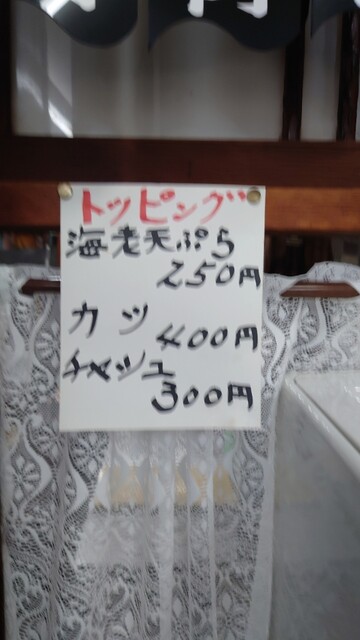 トッピング
海老天ぷら
250円
カツ
400円
チャシュ
300円